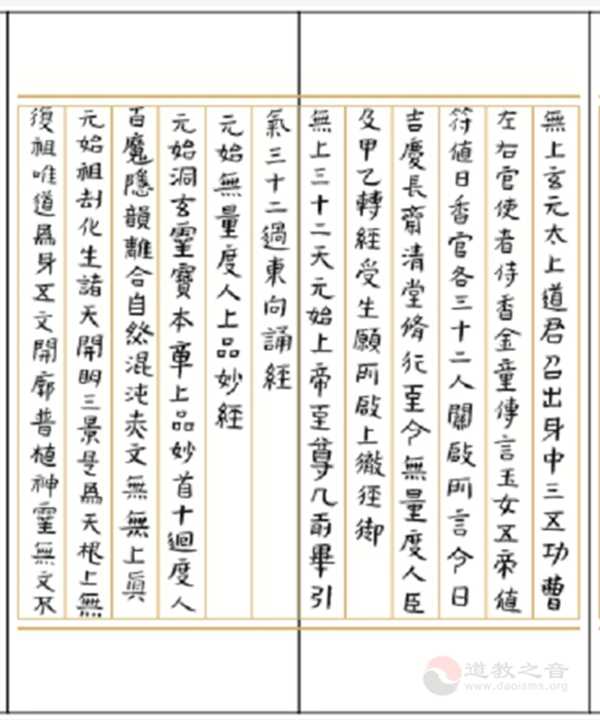 無上玄元太上道君召出身中三五功曹
左右官使者侍香金童傳言玉女五帝值
符值日香官各三十二人關啟所言今日
吉慶長齋清堂脩行至今無量度人臣
及甲乙轉經受生願所啟上徹徑御
無上三十二天元始上帝至尊几前畢引
氣三十二過東向誦經
元始無量度人上品妙經
元始洞玄靈寶本章上品妙首十迴度人
百魔隱韻離合自然混沌赤文無無上真
元始祖劫化生諸天開明三景是為天根上無
復祖唯道為身五文開廓普植神靈無文不
道教之音
www.daoisms.org